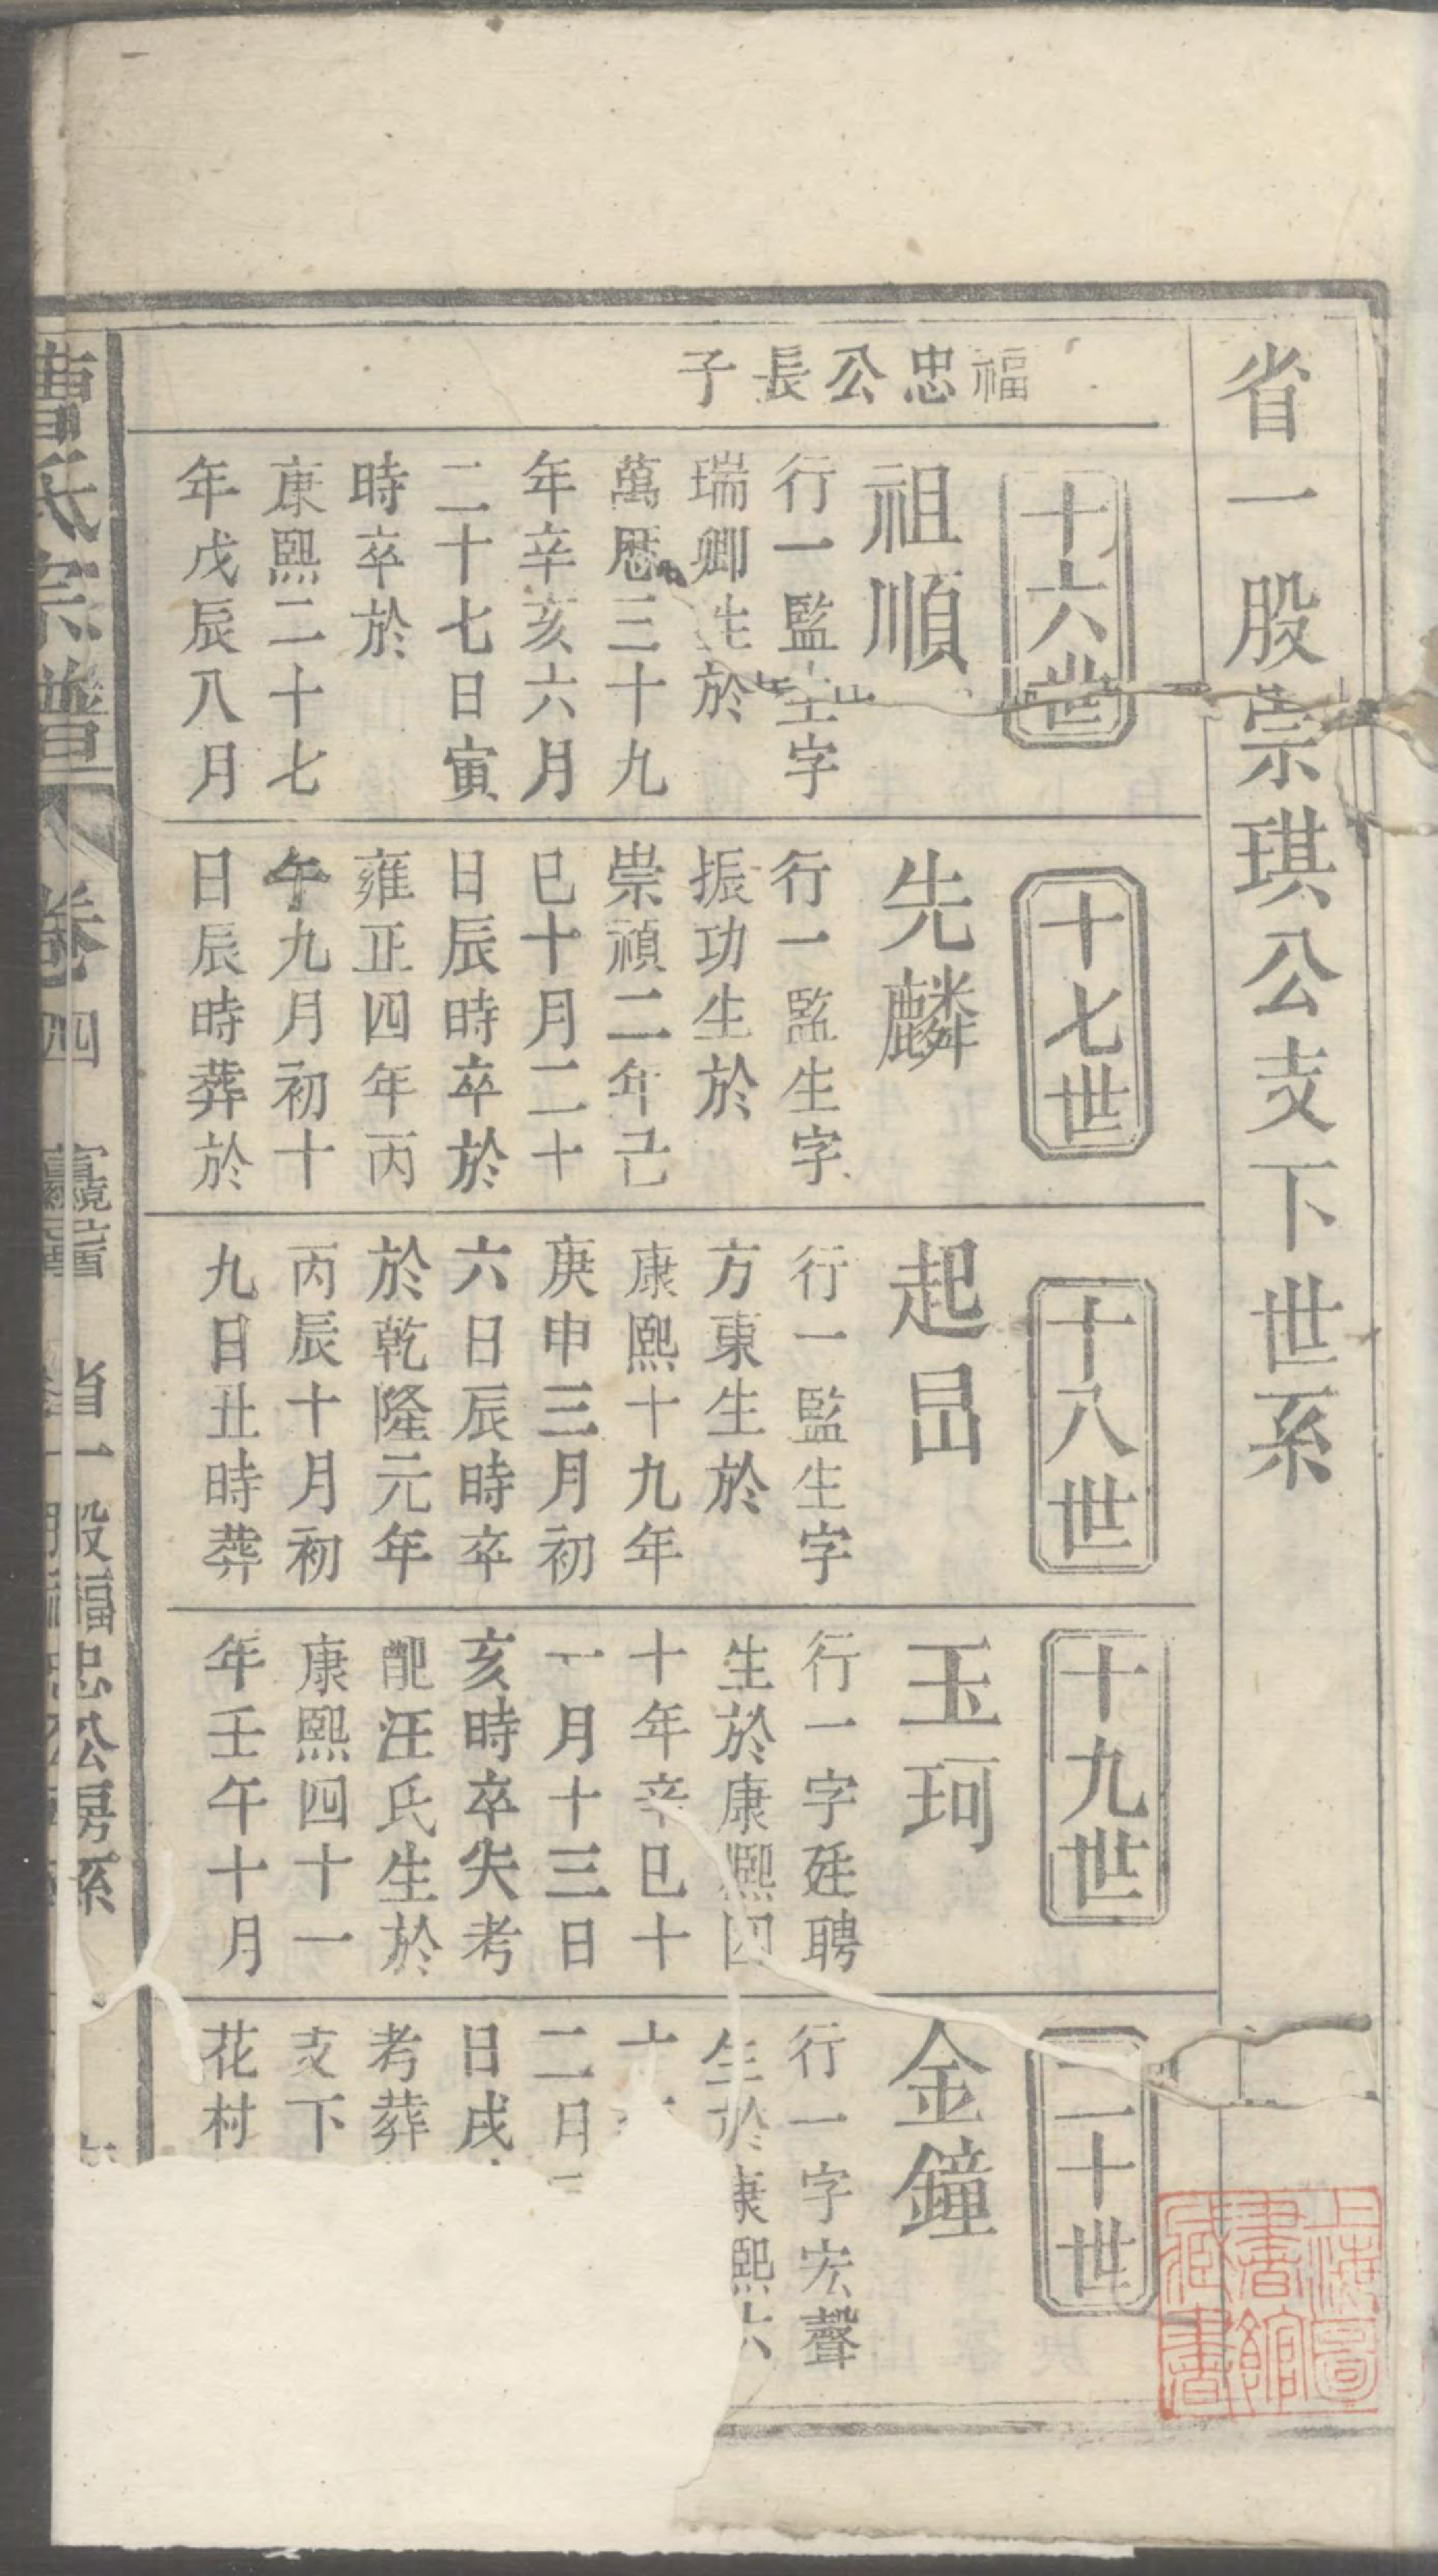 省一股崇琪公支下世系
福忠公長子
十六世
祖順
行一監生字
瑞卿生於
萬曆三十九
年辛亥六月
二十七日寅
時卒於
康熙二十七
年戊辰八月
十七世
先麟
行一監生字
振功生於
崇禎二年己
巳十月二十
日辰時卒於
雍正四年丙
午九月初十
日辰時葬於
十八世
起
行一監生字
方東生於
康熙十九年
庚申三月初
六日辰時卒
於乾隆元年
丙辰十月初
九日丑時葬
十九世
玉珂
行一字廷聘
生於康熙四
十年辛巳十
一月十三日
亥時卒失考
配汪氏生於
康熙四十一
年壬午十月
二十世
金鐘
行一字宏聲
生於康熙六
十
二月
日戌
考葬
支下
花村
曹氏宗譜
卷四
省一股福忠公房系
上海圖書館藏書